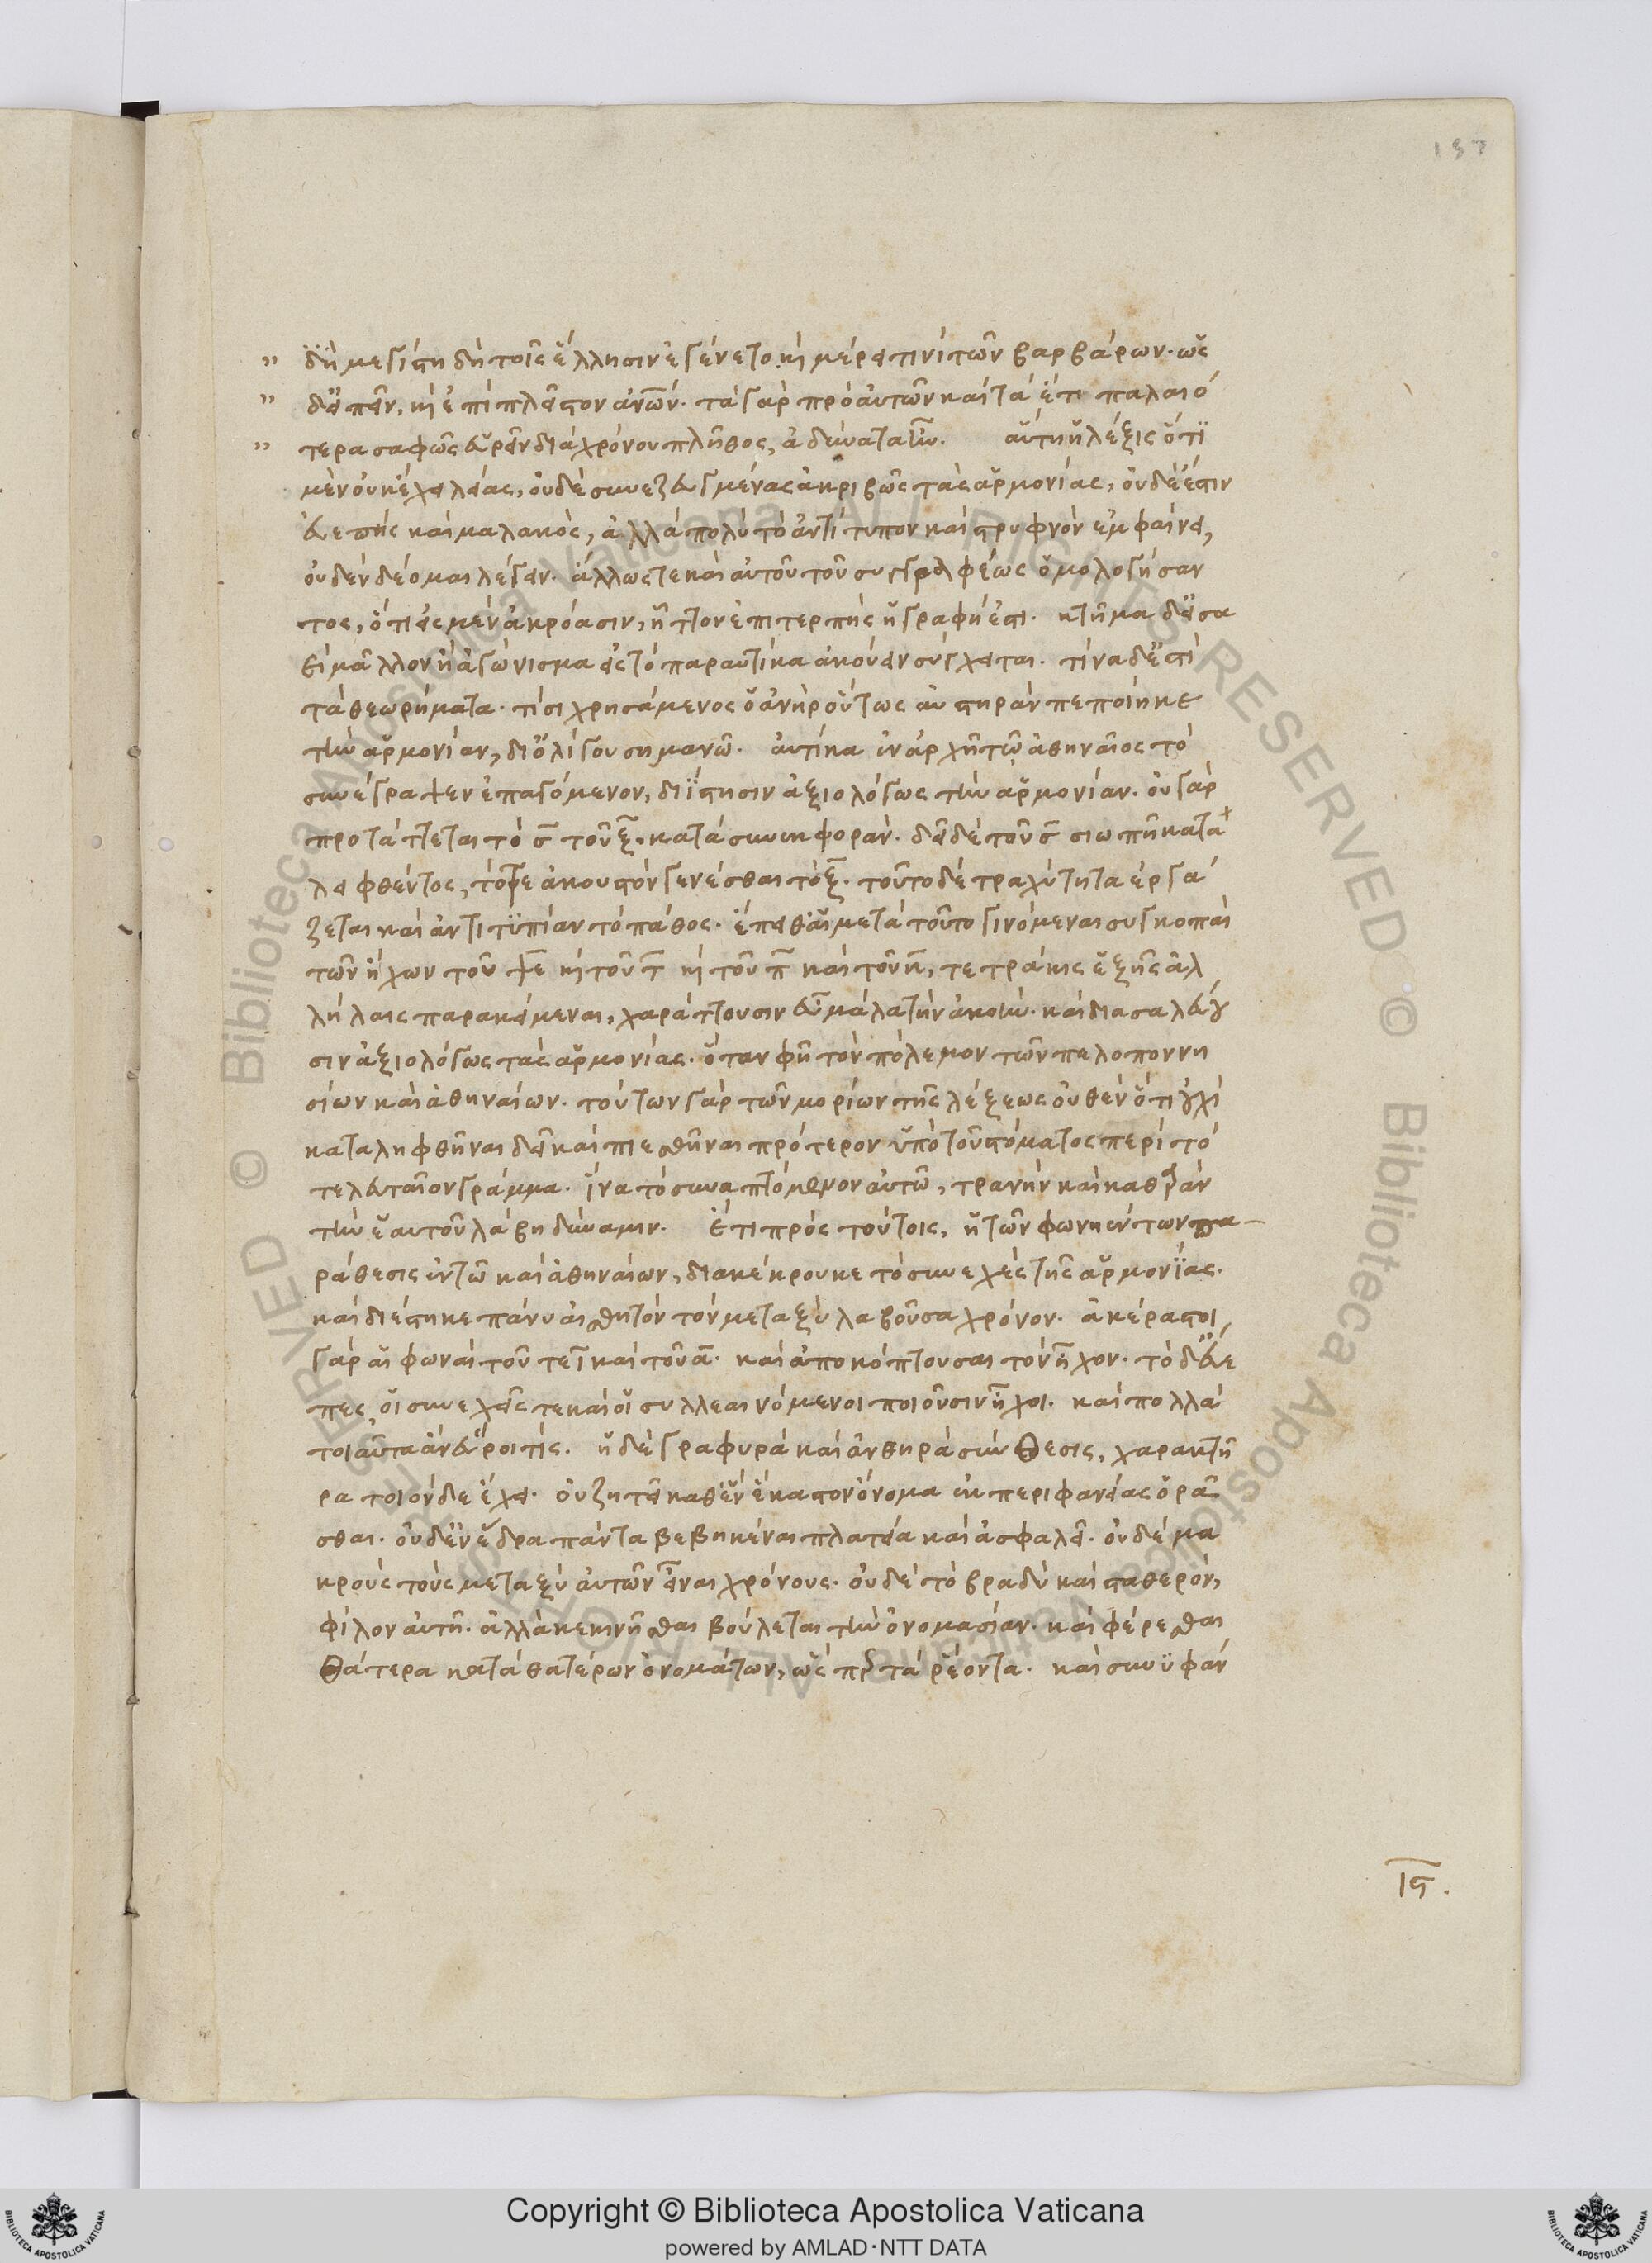 157
" δὴ μεγίστη δὴ τοῖς ἕλλησιν ἐγένετο. κὴ μέρει τινὶ τῶν βαρβάρων. ὡς
" δ' εἰπεῖν, κὴ ἐπὶ πλεῖστον ἀνῶν. τὰ γὰρ πρὸ αὐτῶν καὶ τὰ ἔτι παλαιό
" τερα σαφῶς εὑρεῖν διὰ χρόνου πλῆθος, ἀδύνατα ἦν. αὕτη ἡ λέξις ὅτι
μὲν οὐκ ἔχει λείας, οὐδὲ συνεζευγμένας ἀκριβῶς τὰς ἁρμονίας, οὐδ' ἔστιν
εὐεπὴς καὶ μαλακὸς, ἀλλὰ πολὺ τὸ ἀντίτυπον καὶ στρυφνὸν ἐμφαίνει,
οὐδὲν δέομαι λέγειν. ἄλλως τε καὶ αὐτοῦ τοῦ συγγραφέως ὁμολογήσαν
τος, ὅτι εἰς μὲν ἀκρόασιν, ἧττον ἐπιτερπὴς ἡ γραφή ἐστι. κτῆμα δ' εἰσα
εὶ μᾶλλον ἢ ἀγώνισμα εἰς τὸ παραυτίκα ἀκούειν σύγκειται. τίνα δ' ἐστὶ
τὰ θεωρήματα. τίσι χρησάμενος ὁ ἀνὴρ οὕτως αὐστηρὰν πεποίηκε
τὴν ἁρμονίαν, δι' ὀλίγου σημανῶ. αὐτίκα ἐν ἀρχῇ τῷ ἀθηναῖος τὸ
συνέγραψεν ἐπαγόμενον, διΐστησιν ἀξιολόγως τὴν ἁρμονίαν. οὐ γὰρ
προτάττεται τὸ σ τοῦ ξ κατὰ συνεκφοράν. δεῖ δὲ τοῦ σ σιωπῇ κατα
λειφθέντος, τότε ἀκουστὸν γενέσθαι τὸ ξ. τοῦτο δὲ τραχύτητα ἐργά
ζεται καὶ ἀντιτυπίαν τὸ πάθος. ἔπειθ' αἱ μετὰ τοῦτο γινόμεναι συγκοπαὶ
τῶν ἤχων τοῦ ψε κὴ τοῦ τ κὴ τοῦ π καὶ τοῦ κ, τετράκις ἑξῆς ἀλ
λήλαις παρακείμεναι, χαράττουσιν εὖ μάλα τὴν ἀκοὴν. καὶ διασαλεύου
σιν ἀξιολόγως τὰς ἁρμονίας. ὅταν φῆ τὸν πόλεμον τῶν πελοποννη
σίων καὶ ἀθηναίων. τούτων γὰρ τῶν μορίων τῆς λέξεως οὐθὲν ὅτι οὐχὶ
καταληφθῆναι δεῖ καὶ πιεσθῆναι πρότερον ὑπὸ τοῦ στόματος περὶ τὸ
τελευταῖον γράμμα. ἵνα τὸ συναπτόμενον αὐτῶ, τρανὴν καὶ καθαρὰν
τὴν ἑαυτοῦ λάβη δύναμιν. Ἔτι πρὸς τούτοις, ἡ τῶν φωνηέντων πα
ράθεσις ἐν τῶ καὶ ἀθηναίων, διακέκρουκε τὸ συνεχὲς τῆς ἁρμονίας.
καὶ διέστηκε πάνυ αἰσθητὸν τὸν μεταξὺ λαβοῦσα χρόνον. ἀκέραστοι
γὰρ αἱ φωναὶ τοῦ τε ι καὶ τοῦ α. καὶ ἀποκόπτουσαι τὸν ἦχον. τὸ δ' εὐε
πὲς, οἱ συνεχεῖς τε καὶ οἱ συλλεαινόμενοι ποιοῦσιν ἦχοι. καὶ πολλὰ
τοιαῦτα ἂν εὕροι τίς. ἡ δὲ γραφυρὰ καὶ ἀνθηρὰ σύνθεσις, χαρακτῆ
ρα τοιόνδε ἔχει. οὐ ζητεῖ καθ' ἓν ἕκαστον ὄνομα ἐκ περιφανείας ὁρᾶ
σθαι. οὐδ' ἐν ἕδρα πάντα βεβηκέναι πλατεία καὶ ἀσφαλεῖ. οὐδὲ μα
κροὺς τοὺς μεταξὺ αὐτῶν εἶναι χρόνους. οὐδὲ τὸ βραδὺ καὶ σταθερὸν,
φίλον αὐτῆ. ἀλλὰ κεκινῆσθαι βούλεται τὴν ὀνομασίαν. καὶ φέρεσθαι
θάτερα κατὰ θατέρων ὀνομάτων, ὥσπερ τὰ ῥέοντα. καὶ συνϋφάν
ις.
Copyright © Biblioteca Apostolica Vaticana
powered by AMLAD·NTT DATA